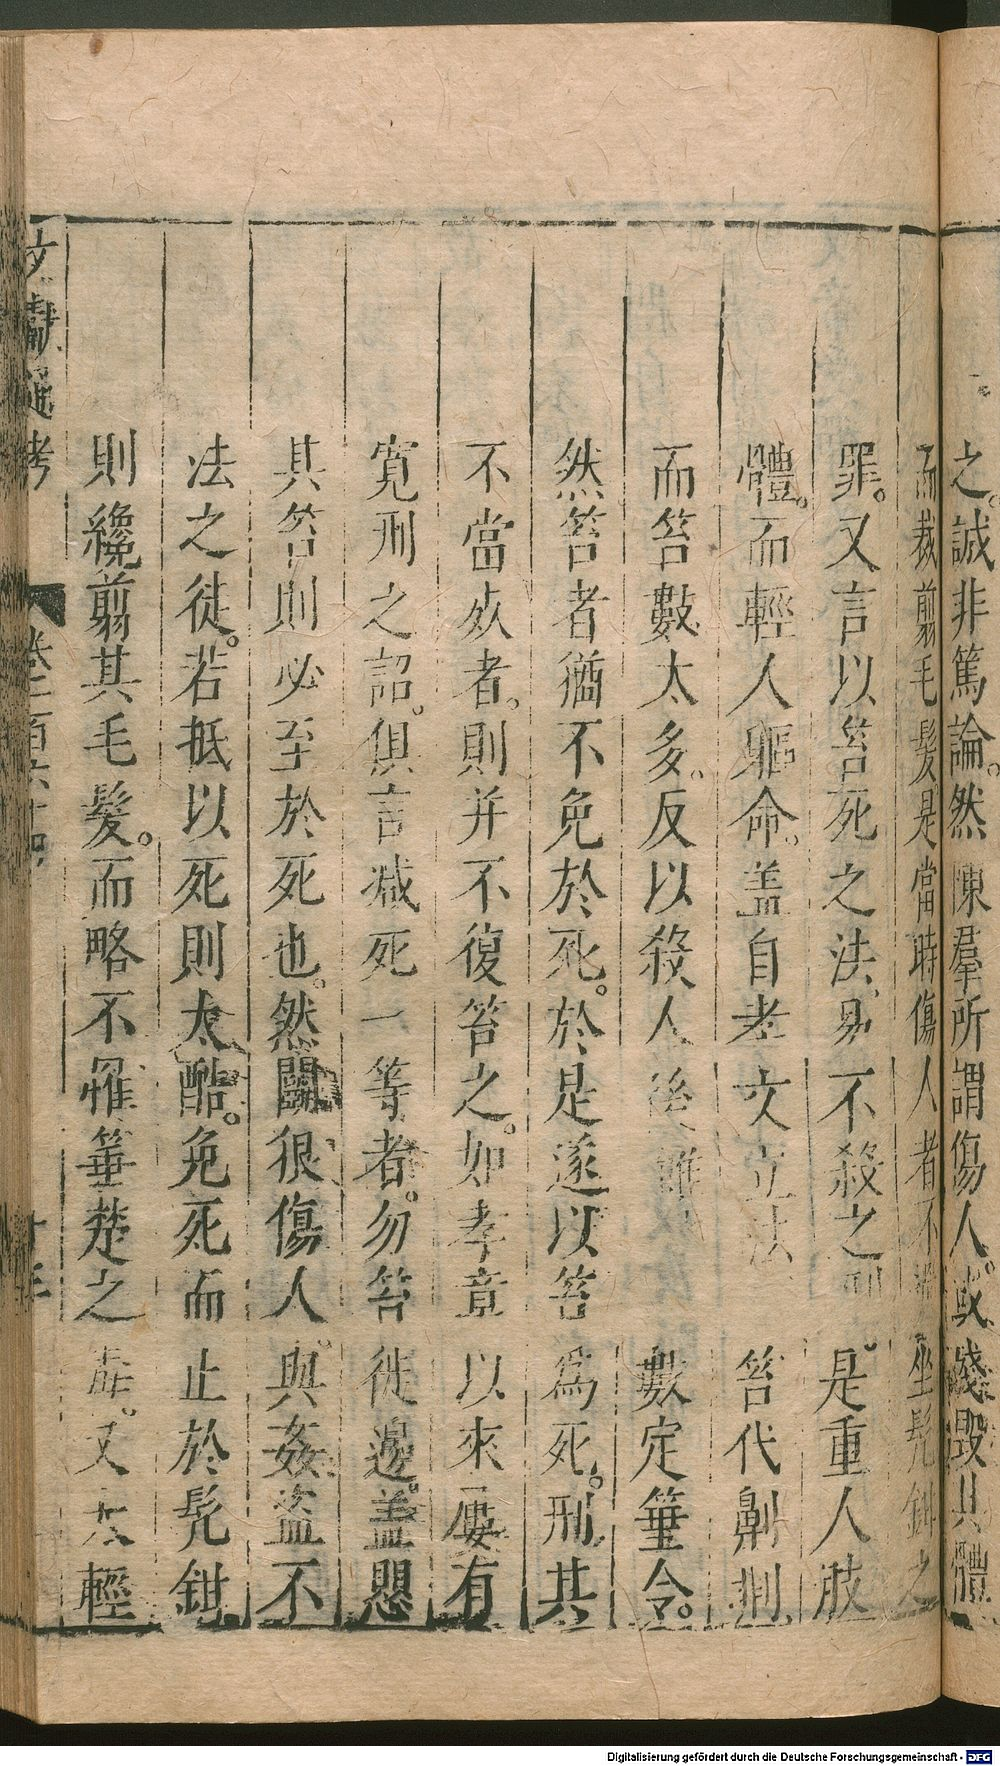 之。誠非篤論。然陳羣所謂傷人。或殘毀其體
而裁剪毛髮是當時傷人者不過坐髡鉗之
罪。又言以笞死之法。易不殺之刑。是重人肢
體。而輕人軀命。盖自孝文立法笞代劓刖
而笞數太多。反以殺人後雖數定箠令。
然笞者猶不免於死。於是遂以笞為死。刑其
不當死者。則并不復笞之。如孝章以來屢有
寛刑之詔。俱言減死一等者。勿笞徙邊。盖懲
其笞則必至於死也。然鬭狠傷人。與姦盜不
法之徒。若抵以死則太酷。免死而止於髡鉗
則纔剪其毛髮。而略不罹箠楚之毒。又太輕
文獻通考
卷一百六十四